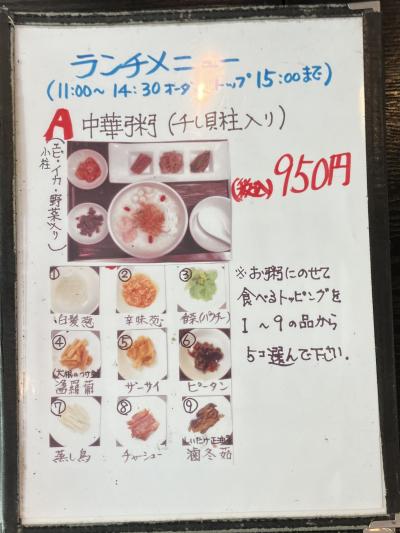 ランチメニュー
(11:00〜14:30オーダーストップ 15:00まで)
A 中華粥(干し貝柱入り)
(エビ・イカ・野菜入り)
小柱
(税込)950円
① 白髪葱
② 辛味葱
③ 香菜(パクチー)
④
⑤ ザーサイ
⑥ ピータン
⑦ 蒸し鳥
⑧ チャーシュー
⑨
※お粥にのせて
食べるトッピングを
1〜9の品から
5コ選んで下さい.